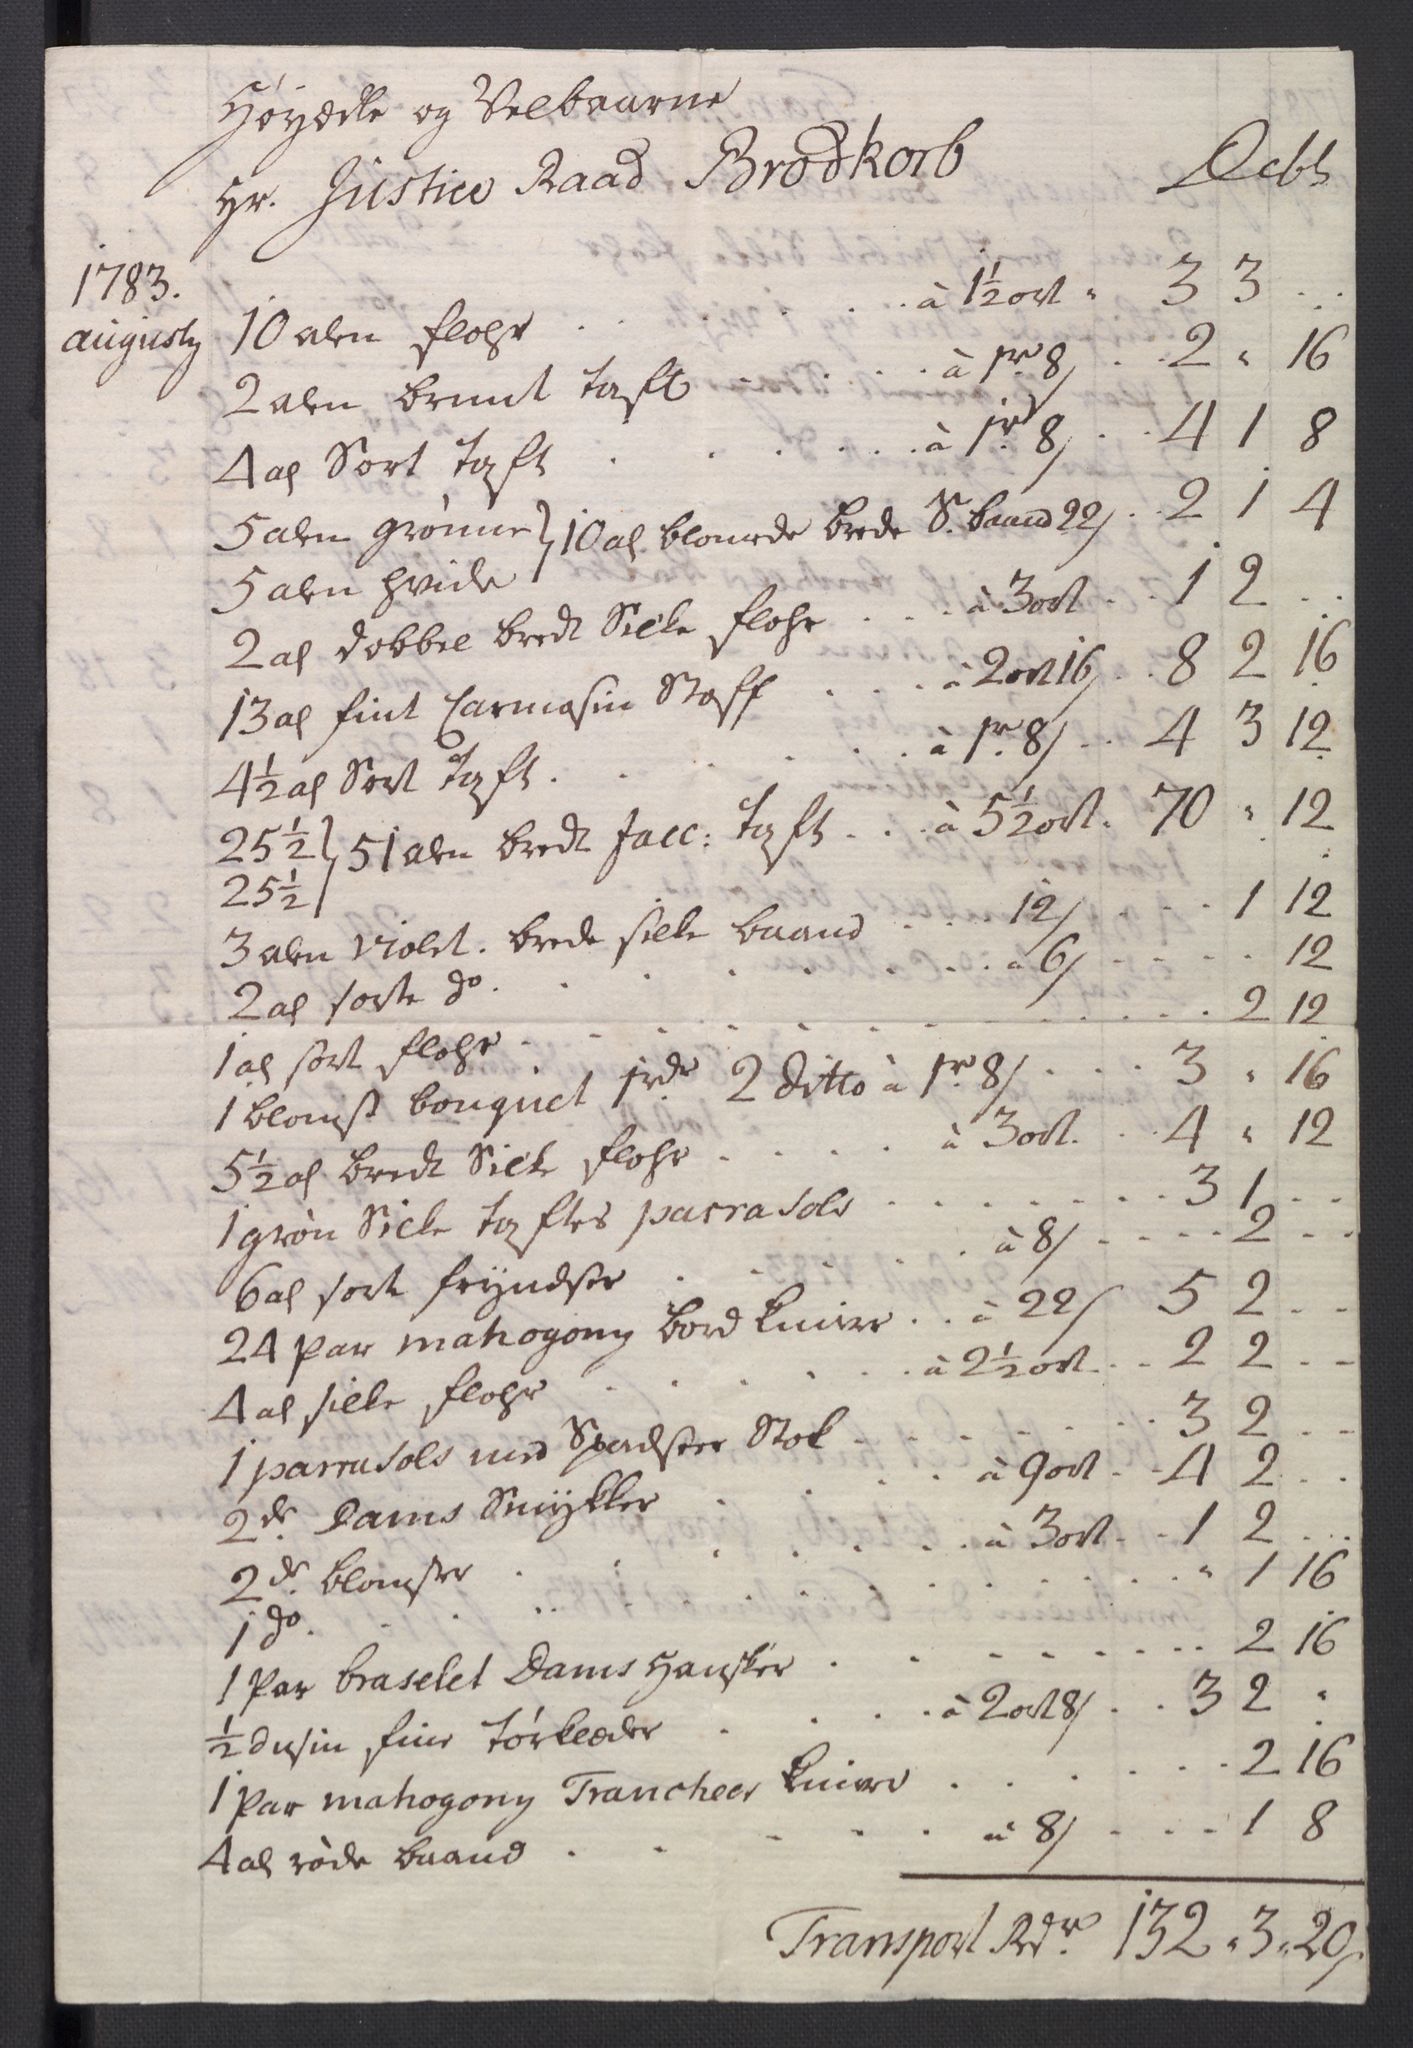 Høyædle og Velbaarne
Hr. Justice Raad Brodkorb Debt
1783.
augusty 10 alen flohr . . . . . . à 1½ ort " 3 3 . .
2 alen bruut taft . . . . à 1r 8/ . . 2 " 16
4 al Sort taft . . . . . . à 1r 8/ . . 4 1 8
5 alen grønne } 10 al blomede brede S. baand 22/ . . 2 1 4
5 alen hvide
2 al dobbel bredt Silke flohr . . . à 3 ort . . . 1 2 . .
13 al fint Carmosin Stoff . . . à 2 ort 16/ . . 8 2 16
4½ al Sort taft . . . . . . à 1r 8/ . . 4 3 12
25½ } 51 alen bredt facc: taft . . . à 5½ ort . 70 " 12
25½
3 alen violet. brede silke baand . . . 12/ . . . . 1 12
2 al sorte do . . . . . . . . à 6/ . . . . . 12
1 al sort flohr . . . . . . . . . . . . 2 12
1 blomst bouquet 1rdr 2 ditto à 1r 8/ . . . . 3 " 16
5½ al bredt Silke flohr . . . . à 3 ort . . . 4 " 12
1 grøn Silke taftes parrasols . . . . . . . . 3 1 . .
6 al sort fryndser . . . . . . à 8/ . . . . . 2 . .
24 par mahogony bord knive . . à 22/ 5 2 . .
4 al silke flohr . . . . . . à 2½ ort . . . 2 2 . .
1 parrasols med Spadseer Stok . . . . . . . 3 2 . .
2de Dams Smykker . . . . à 9 ort . . 4 2 . .
2de blomster . . . . . . . à 3 ort . . 1 2 . . .
1 do . . . . . . . . . . . . . . " 1 16
1 par braselet Dams Handsker . . . . . . . . 2 16
½ dusin fine tørklæder . . . . à 2 ort 8/ . . 3 2 "
1 par mahogony Trancheer knive . . . . . . . 2 16
4 al røde baand . . . . . . à 8/ . . . . 1 8
Transport Rdr 132 " 3 " 20/